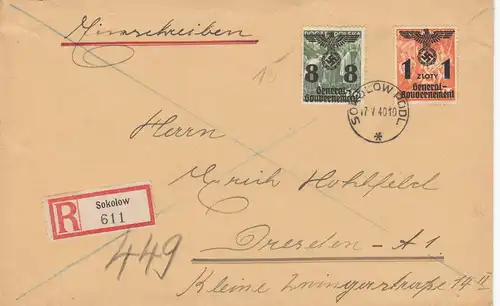 Einschreiben
15
POCZTA POLSKA
8 8
General-
Gouvernement
1 1
ZŁOTY
General-
Gouvernement
SOKOLOW PODL.
17 V 40 10
*
Herrn
Ulrich Hohlfeld
R
Sokolow
611
449
Dresden - A 1
Kleine Zwingerstraße 14 II